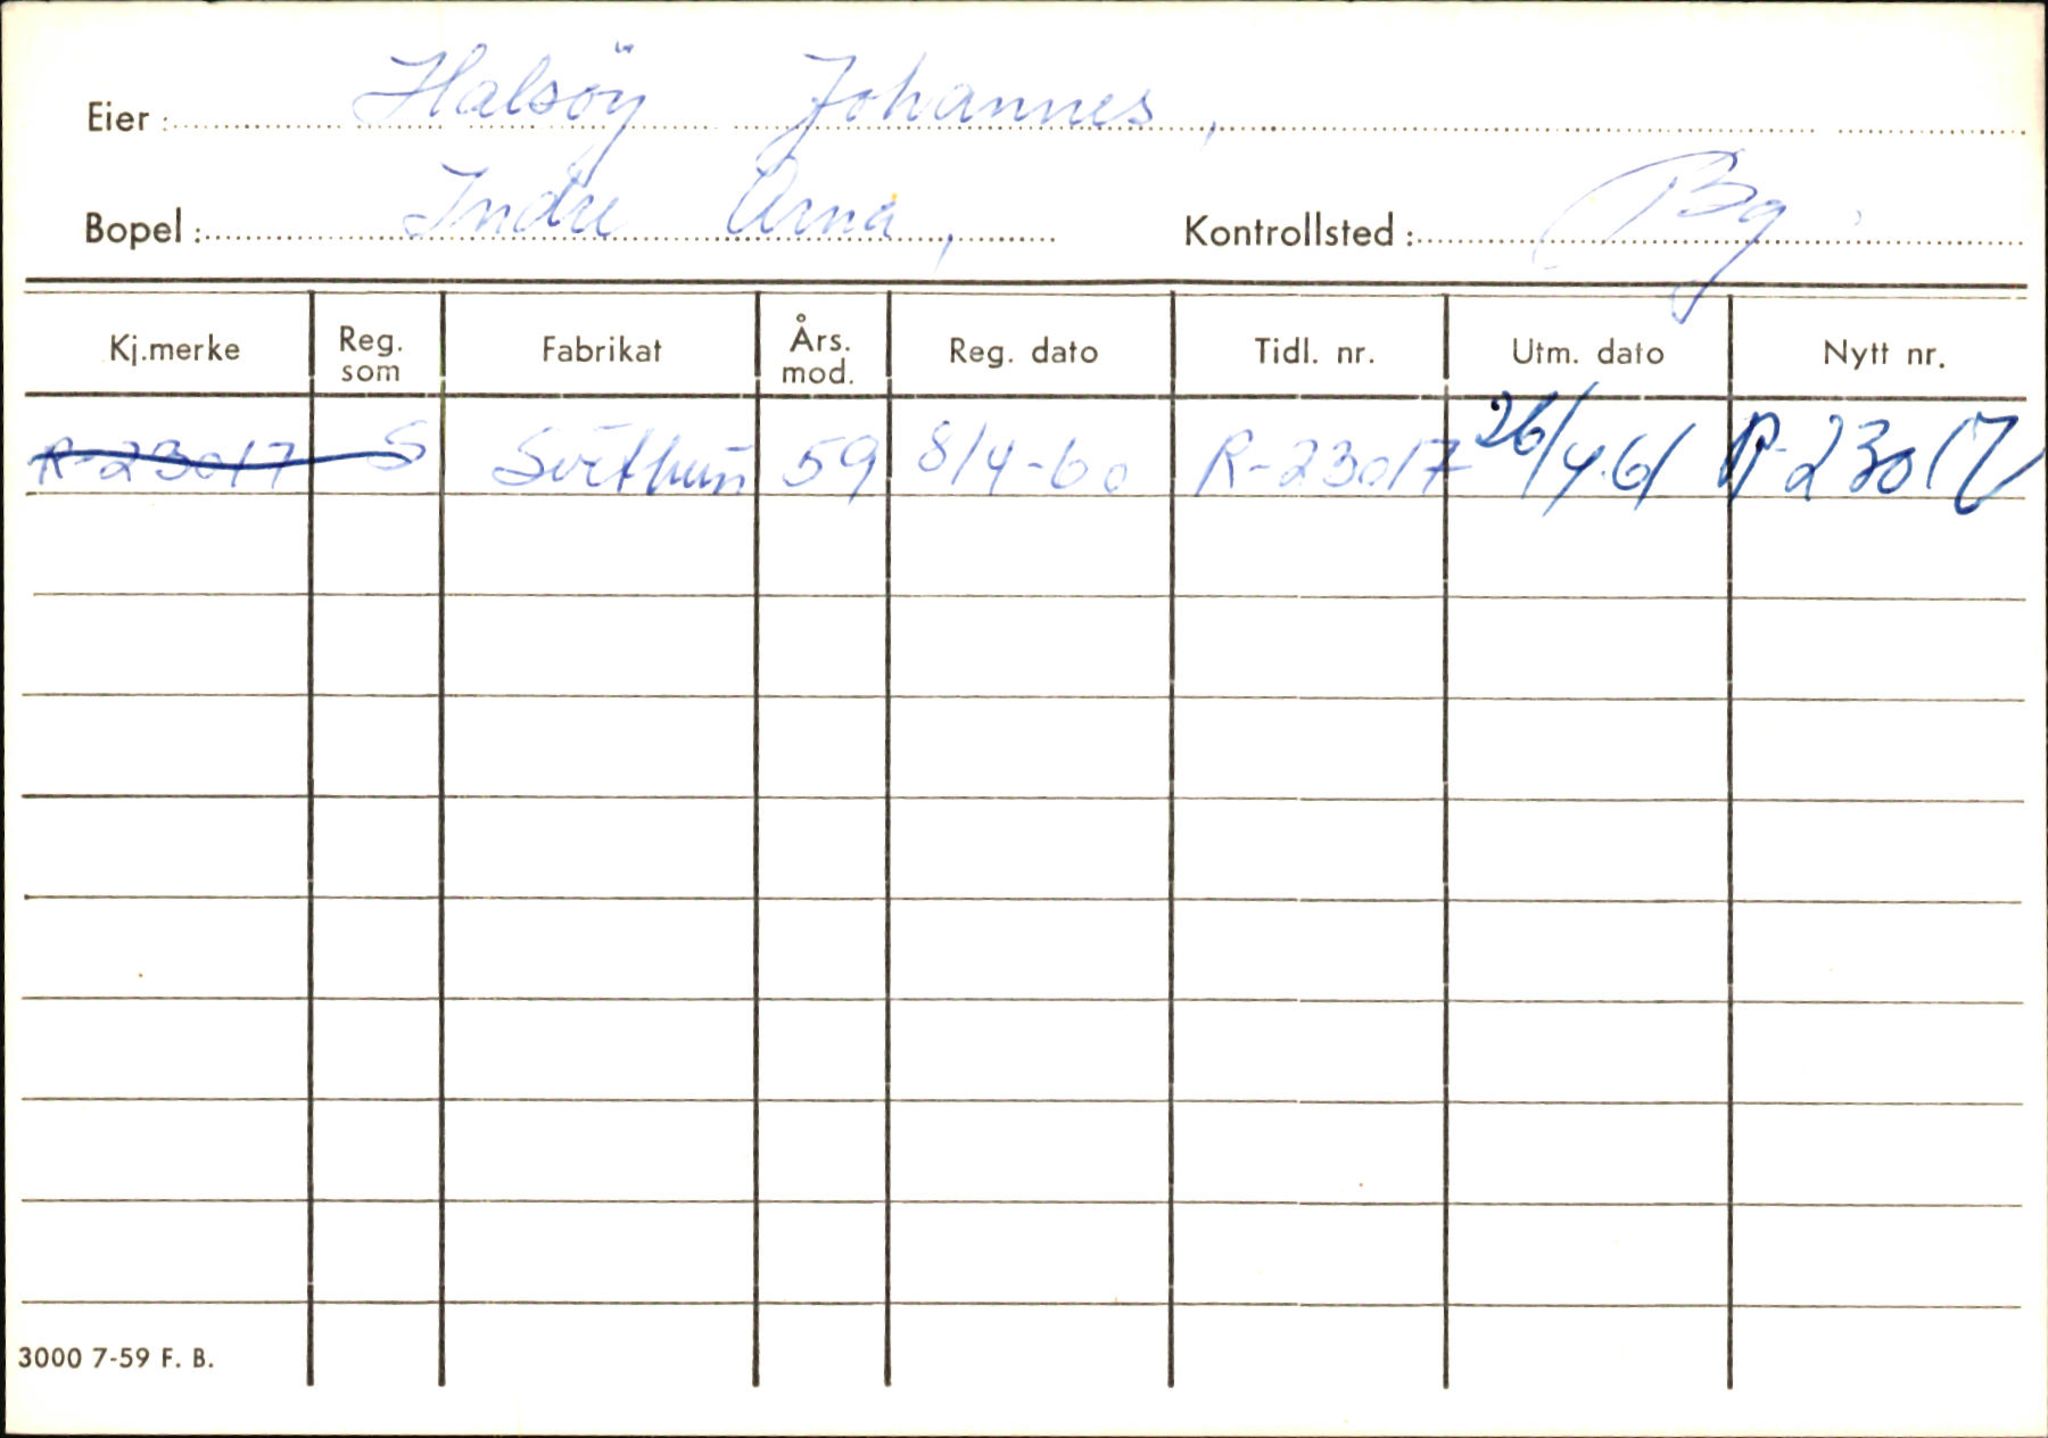 Eier: Halsöy Johannes,
Bopel: Indre Arna, Kontrollsted: Bg.
Kj.merke Reg. som Fabrikat Års. mod. Reg. dato Tidl. nr. Utm. dato Nytt nr.
R-23017 S Svithun 59 8/4-60 R-23017 26/4.61 R-23017
3000 7-59 F. B.